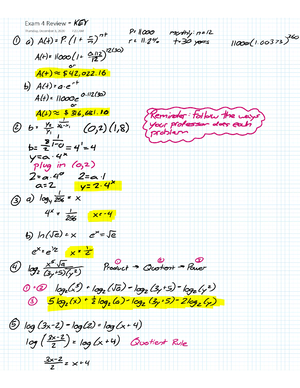 Exam 4 Review - KEY
① a) A(t) = P(1 + r/n)^nt P = 11000 monthly: n=12
r = 11.2% t = 30 years 11000(1.00373)^360
A(t) = 11000(1 + 0.112/12)^12(30)
or
A(t) ≈ $42,022.16
b) A(t) = a·e^rt
A(t) = 11000e^0.112(30)
or
② (0,2)(1,8)
Reminder: follow the ways
your professor does each
problem
b = (8/2)^1/1-0 = 4^1 = 4
y = a·4^x
plug in (0,2)
2 = a·4^0 2 = a·1
a = 2 y = 2·4^x
③ a) log₄ 1/256 = x
4^x = 1/256 x = -4
b) ln(√e) = x e^x = √e
e^x = e^1/2 x = 1/2
④ log₂ x⁵√a/(3y+5)(y²) ① Product → ② Quotient → ③ Power
①+② log₂(x⁵) + log₂(√a) - log₂(3y+5) - log₂(y²)
③ 5log₂(x) + ½log₂(a) - log₂(3y+5) - 2log₂(y)
⑤ log(3x-2) - log(2) = log(x+4)
log(3x-2/2) = log(x+4) Quotient Rule
3x-2/2 = x+4